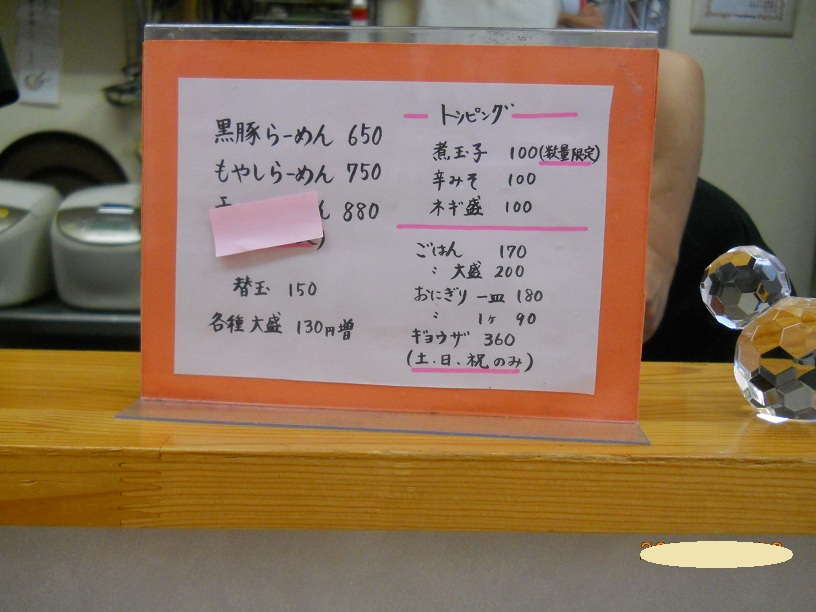 黒豚らーめん 650
もやしらーめん 750
ん 880
替玉 150
各種大盛 130円増
トッピング
煮玉子 100(数量限定)
辛みそ 100
ネギ盛 100
ごはん 170
〃 大盛 200
おにぎり 一皿 180
〃 1ヶ 90
ギョウザ 360
(土、日、祝のみ)